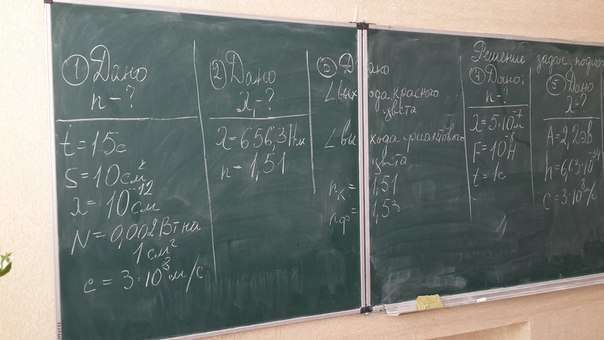 Решение задач, подгот
① Дано
n - ?
t = 15с
S = 10 см²
λ = 10⁻¹² см
N = 0,002 Вт на
1 см²
c = 3·10⁸ м/с
② Дано
λ₁ - ?
λ = 656,3 Нм
n = 1,51
③ Дано
∠ выхода красного
цвета
∠ выхода фиолетового
цвета
nк = 1,51
nф = 1,53
④ Дано:
n - ?
λ = 5·10⁻⁷ м
t = 1с
⑤ Дано
λ = ?
A = 2,2 эВ
c = 3·10⁸ м/с